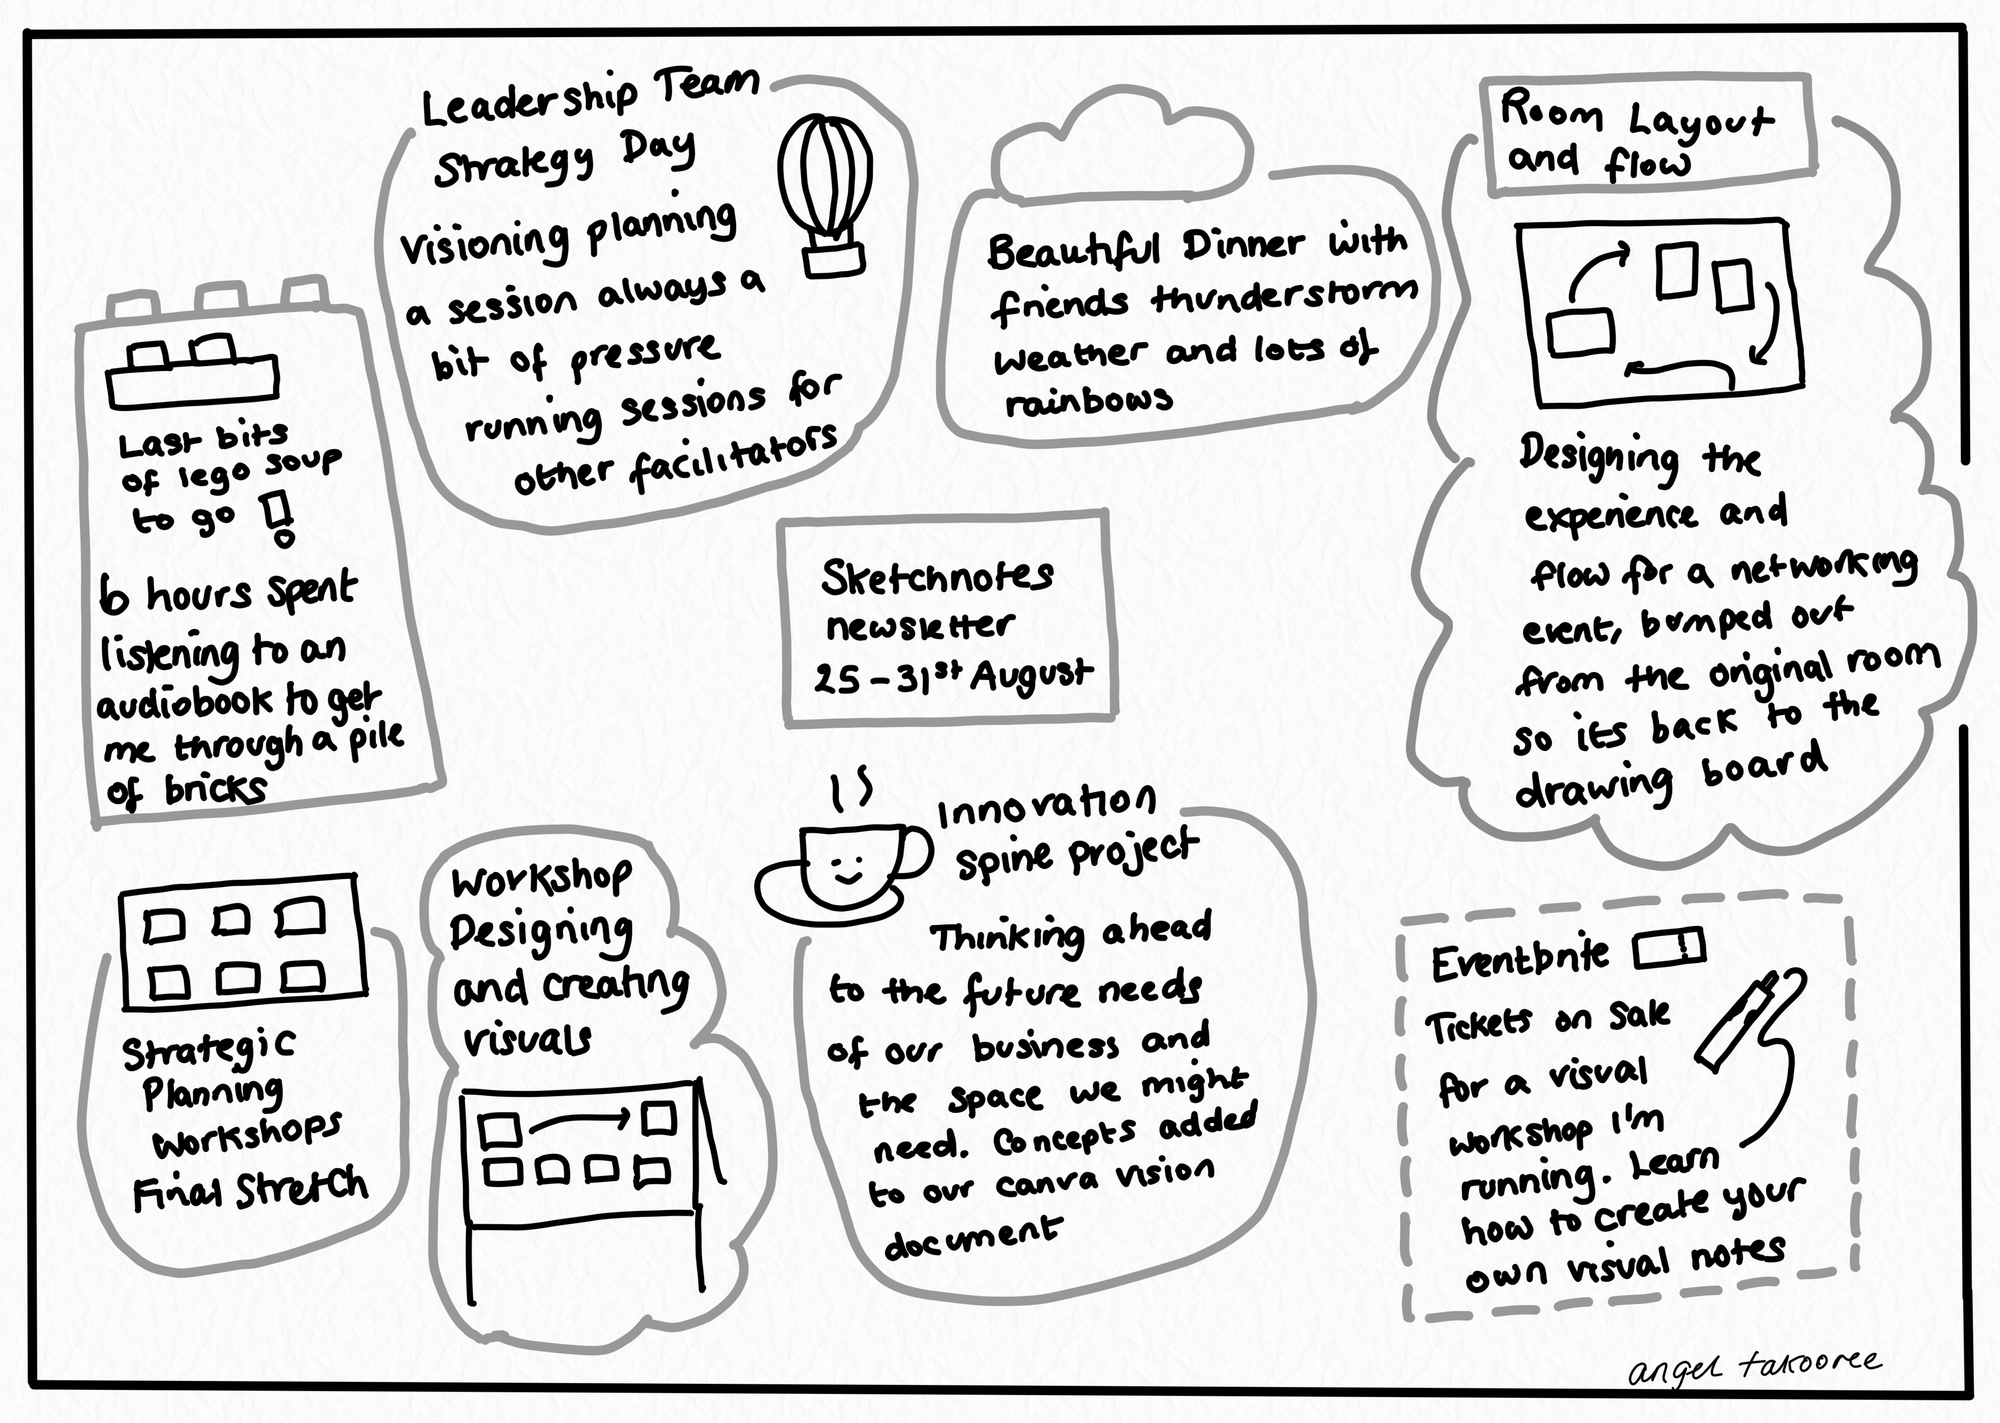 Leadership Team
Strategy Day
visioning planning
a session always a
bit of pressure
running sessions for
other facilitators
Beautiful Dinner with
friends thunderstorm
weather and lots of
rainbows
Room Layout
and flow
Designing the
experience and
flow for a networking
event, bumped out
from the original room
so its back to the
drawing board
Last bits
of lego soup
to go !
6 hours spent
listening to an
audiobook to get
me through a pile
of bricks
Sketchnotes
newsletter
25-31st August
Strategic
Planning
Workshops
Final Stretch
Workshop
Designing
and creating
visuals
Innovation
Spine project
Thinking ahead
to the future needs
of our business and
the space we might
need. Concepts added
to our canva vision
document
Eventbrite
Tickets on sale
for a visual
workshop I'm
running. Learn
how to create your
own visual notes
angel takooree